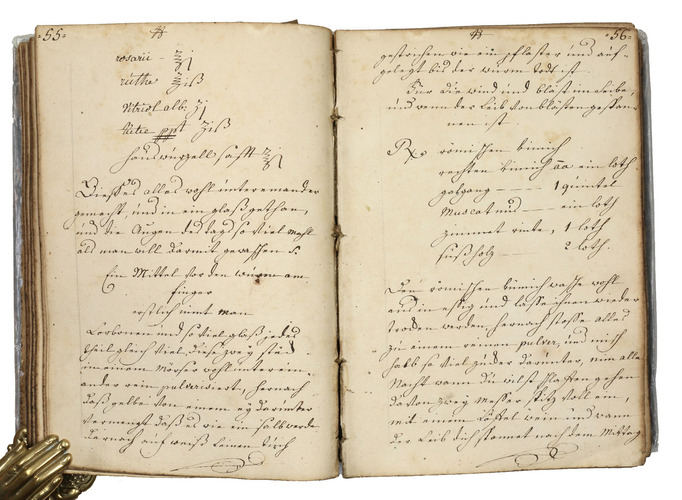 55
rosarii
ruthe ℥iß
Vitriol alb: ʒj
tutie ppt ʒiß
haußwurzell safft
Diesses alles wohl unter einander
gemacht, und in ein glaß gethan,
und die Augen des tags so viel mahl
als man will darmit gewasschen
Ein Mittel vor den wurm am
finger
erstlich nimt man
Lorbonen und so viel glaß jedes
theil gleich viel, diese zwey stück
in einem Mörser wohl unter ein
ander rein pulverisiert, hernach
daß gelbe von einem ey darunter
vermengt daß es wie ein salb werde
darnach auf weiß leinen tuch
56
gestrichen wie ein pflaster und auf
gelegt biß der wurm todt ist
Für die wind und bläst im leibe,
und wenn der leib von blästen gespan
nen ist
Rx römischen kümich
rechten kümich aa ein loth
galgang 1 quintel
Muscat nus ein loth
zimmet rinte, 1 loth
süßholz 2 loth.
Den römischen kümich wasche wohl
aus in essig und lasse ihnen wieder
trocken werden, hernach stosse alles
zu einem reinen pulver, und misch
halb so viel zucker darunter, nim alle
Nacht wann du wilst schlaffen gehen
davon zwey messer spitz voll ein,
mit einem löffel wein und wann
der leib dich spannet nach dem Mittag